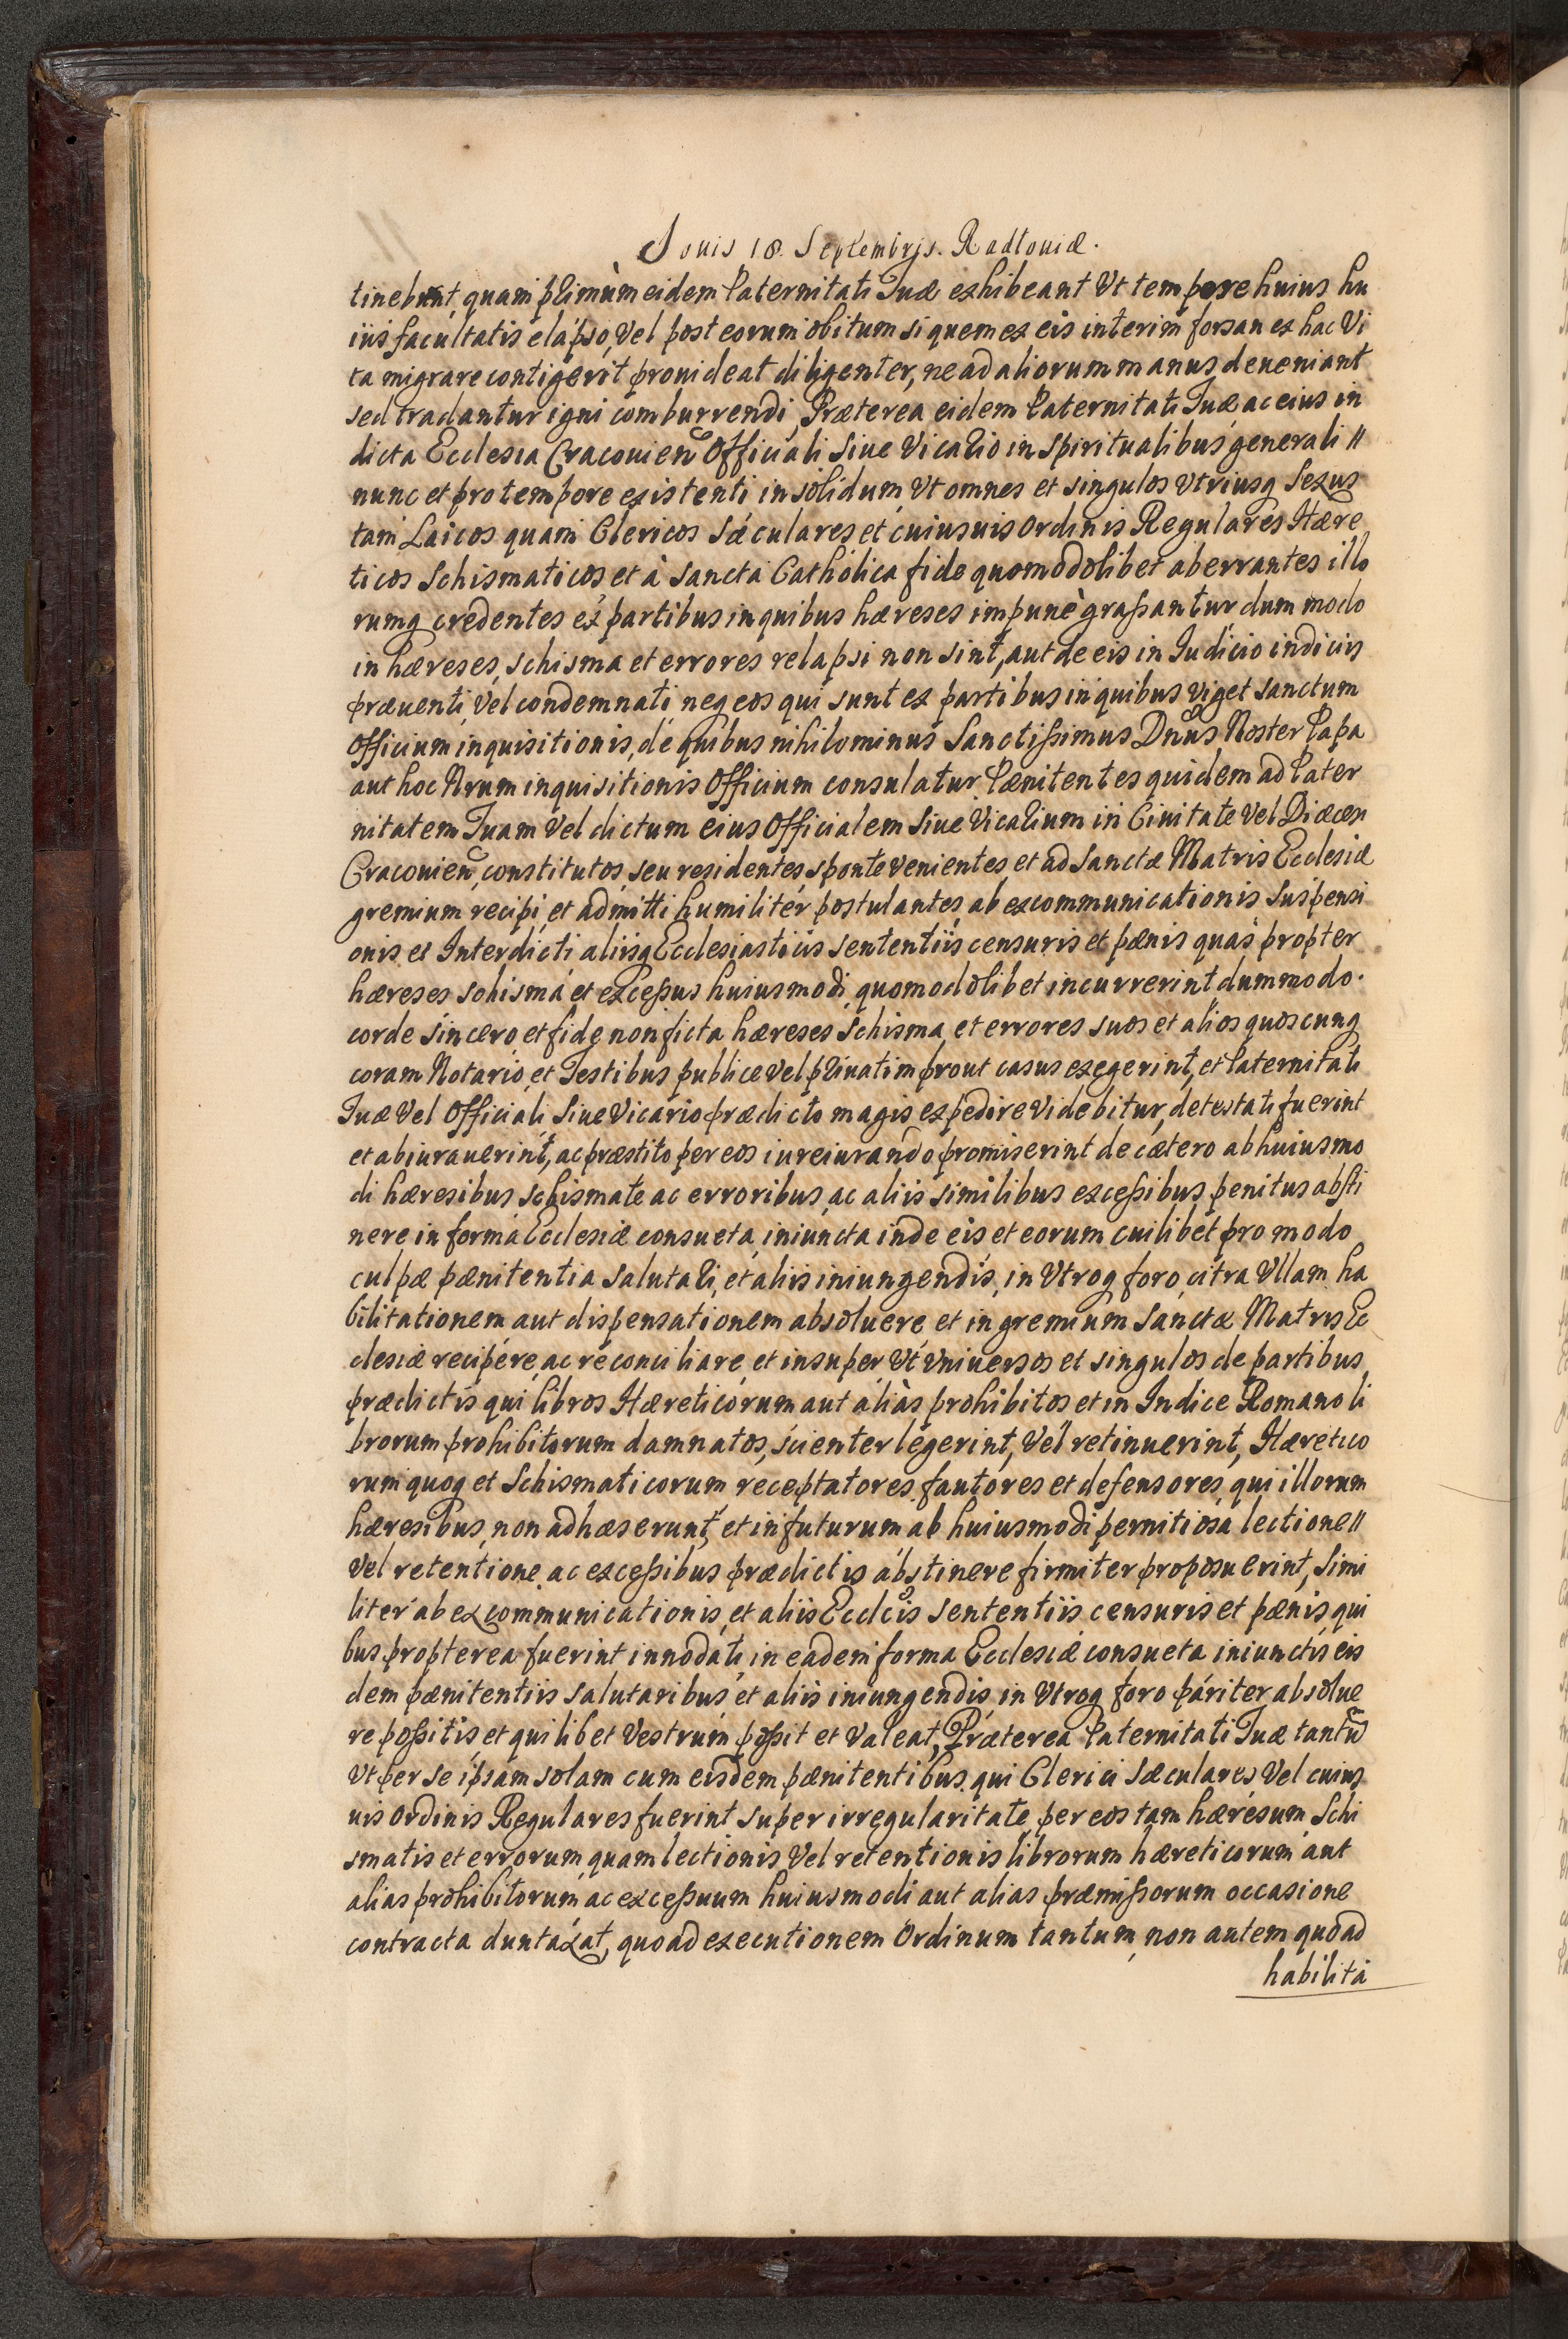 Iouis 18. Septembris. Radłouiæ.
tinebunt, quam primùm eidem Paternitati Tuæ exhibeant Vt tempore huius hu
iùs facultatis elapso, Vel post eorum obitum si quem ex eis interim forsan ex hac Vi
ta migrare contigerit prouideat diligenter, ne ad aliorum manus deueniant
sed tradantur igni comburrendi, Præterea eidem Paternitati Tuæ, ac eius in
dicta Ecclesia Cracouien Officiali Siue Vicario in Spiritualibus generali //
nunc et pro tempore existenti in solidum, Vt omnes et singulos Vtriusq Sexus
tam Laicos quam Clericos Sæculares et cuiusuis Ordinis Regulares Hære
ticos Schismaticos et à Sancta Catholica fide quomodolibet aberrantes illo
rumq credentes ex partibus in quibus hæreses impunè graßantur, dum modo
in hæreses, schisma et errores relapsi non sint, aut de eis in Iudicio indiciis
præuenti, Vel condemnati neq eos qui sunt ex partibus in quibus Viget Sanctum
Officium inquisitionis, de quibus nihilominus Sanctißimus Dnus Noster Papa
aut hoc Nrum inquisitionis Officium consulatur. Pænitentes quidem ad Pater
nitatem Tuam Vel dictum eius Officialem Siue Vicarium in Ciuitate Vel Diæcesi
Cracouien, constitutos, seu residentes, sponte venientes, et ad Sanctæ Matris Ecclesiæ
gremium recipi, et admitti humilitér postulantes, ab excommunicationis Suspensi
onis et Interdicti aliisq Ecclesiasticis sententiis censuris et pænis quas propter
hæreses schisma et exceßus huiusmodi quomodolibet incurrerint dummodo.
corde sincero, et fide non ficta hæreses Schisma, et errores suos et alios quoscunq
coram Notario, et Testibus publice Vel priuatim prout casus exegerint, et Paternitati
Tuæ Vel Officiali, Siue Vicario prædicto magis expedire Videbitur, detestati fuerint
et abiurauerint, ac præstito per eos iureiurando promiserint de cætero ab huiusmo
di hæresibus schismate ac erroribus, ac aliis similibus exceßibus, penitus absti
nere in forma Ecclesiæ consueta, iniuncta inde eis et eorum cuilibet pro modo
culpæ pænitentia Salutari, et aliis iniungendis, in Vtroq foro, citra Vllam ha
bilitationem aut dispensationem absoluere, et in gremium Sanctæ Matris Ec
clesiæ recipére, ac reconciliare, et insuper, Vt Vniuersos et singulos de partibus
prædictis qui libros Hæreticorum aut aliàs prohibitos et in Indice Romano li
brorum prohibitorum damnatos, scienter légerint, Vel retinuerint, Hæretico
rum quoq et Schismaticorum receptatores, fautores et defensores, qui illorum
hæresibus, non adhæserunt, et in futurum ab huiusmodi pernitiosa lectione //
Vel retentione, ac exceßibus prædictis abstinere firmiter proposuerint, Simi
liter ab excommunicationis, et aliis Ecclcis Sententiis censuris et pænis, qui
bus propterea fuerint innodati, in eadem forma Ecclesiæ consueta iniunctis eis
dem pænitentiis Salutaribus et aliis iniungendis, in Vtroq foro páriter absolue
re poßitis, et quilibet Vestrum poßit et Valeat, Præterea Paternitati Tuæ tantu
Vt per se ipsam solam cum eisdem pænitentibus, qui Clerici Sæculares Vel cuius
uis Ordinis Regulares fuerint super irregularitate, per eos tam hæresum, Schi
smatis et errorum quam lectionis Vel retentionis librorum hæreticorum aut
alias prohibitorum ac exceßuum huiusmodi aut alias præmißorum occasione
contracta duntaxat, quoad executionem Ordinum tantum, non autem quoad
habilita